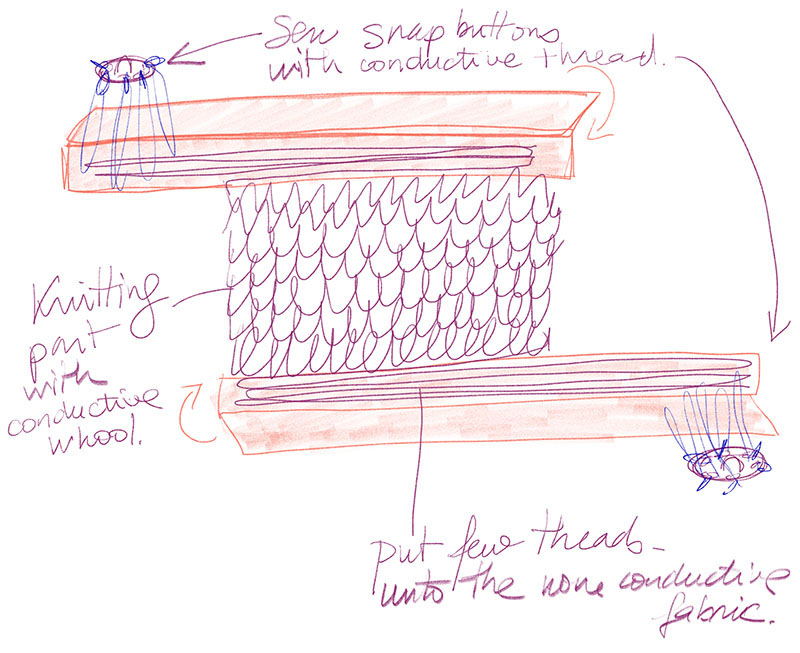 Sew snap buttons
with conductive thread.
Knitting
part
with
conductive
whool.
put few threads
unto the none conductive
fabric.